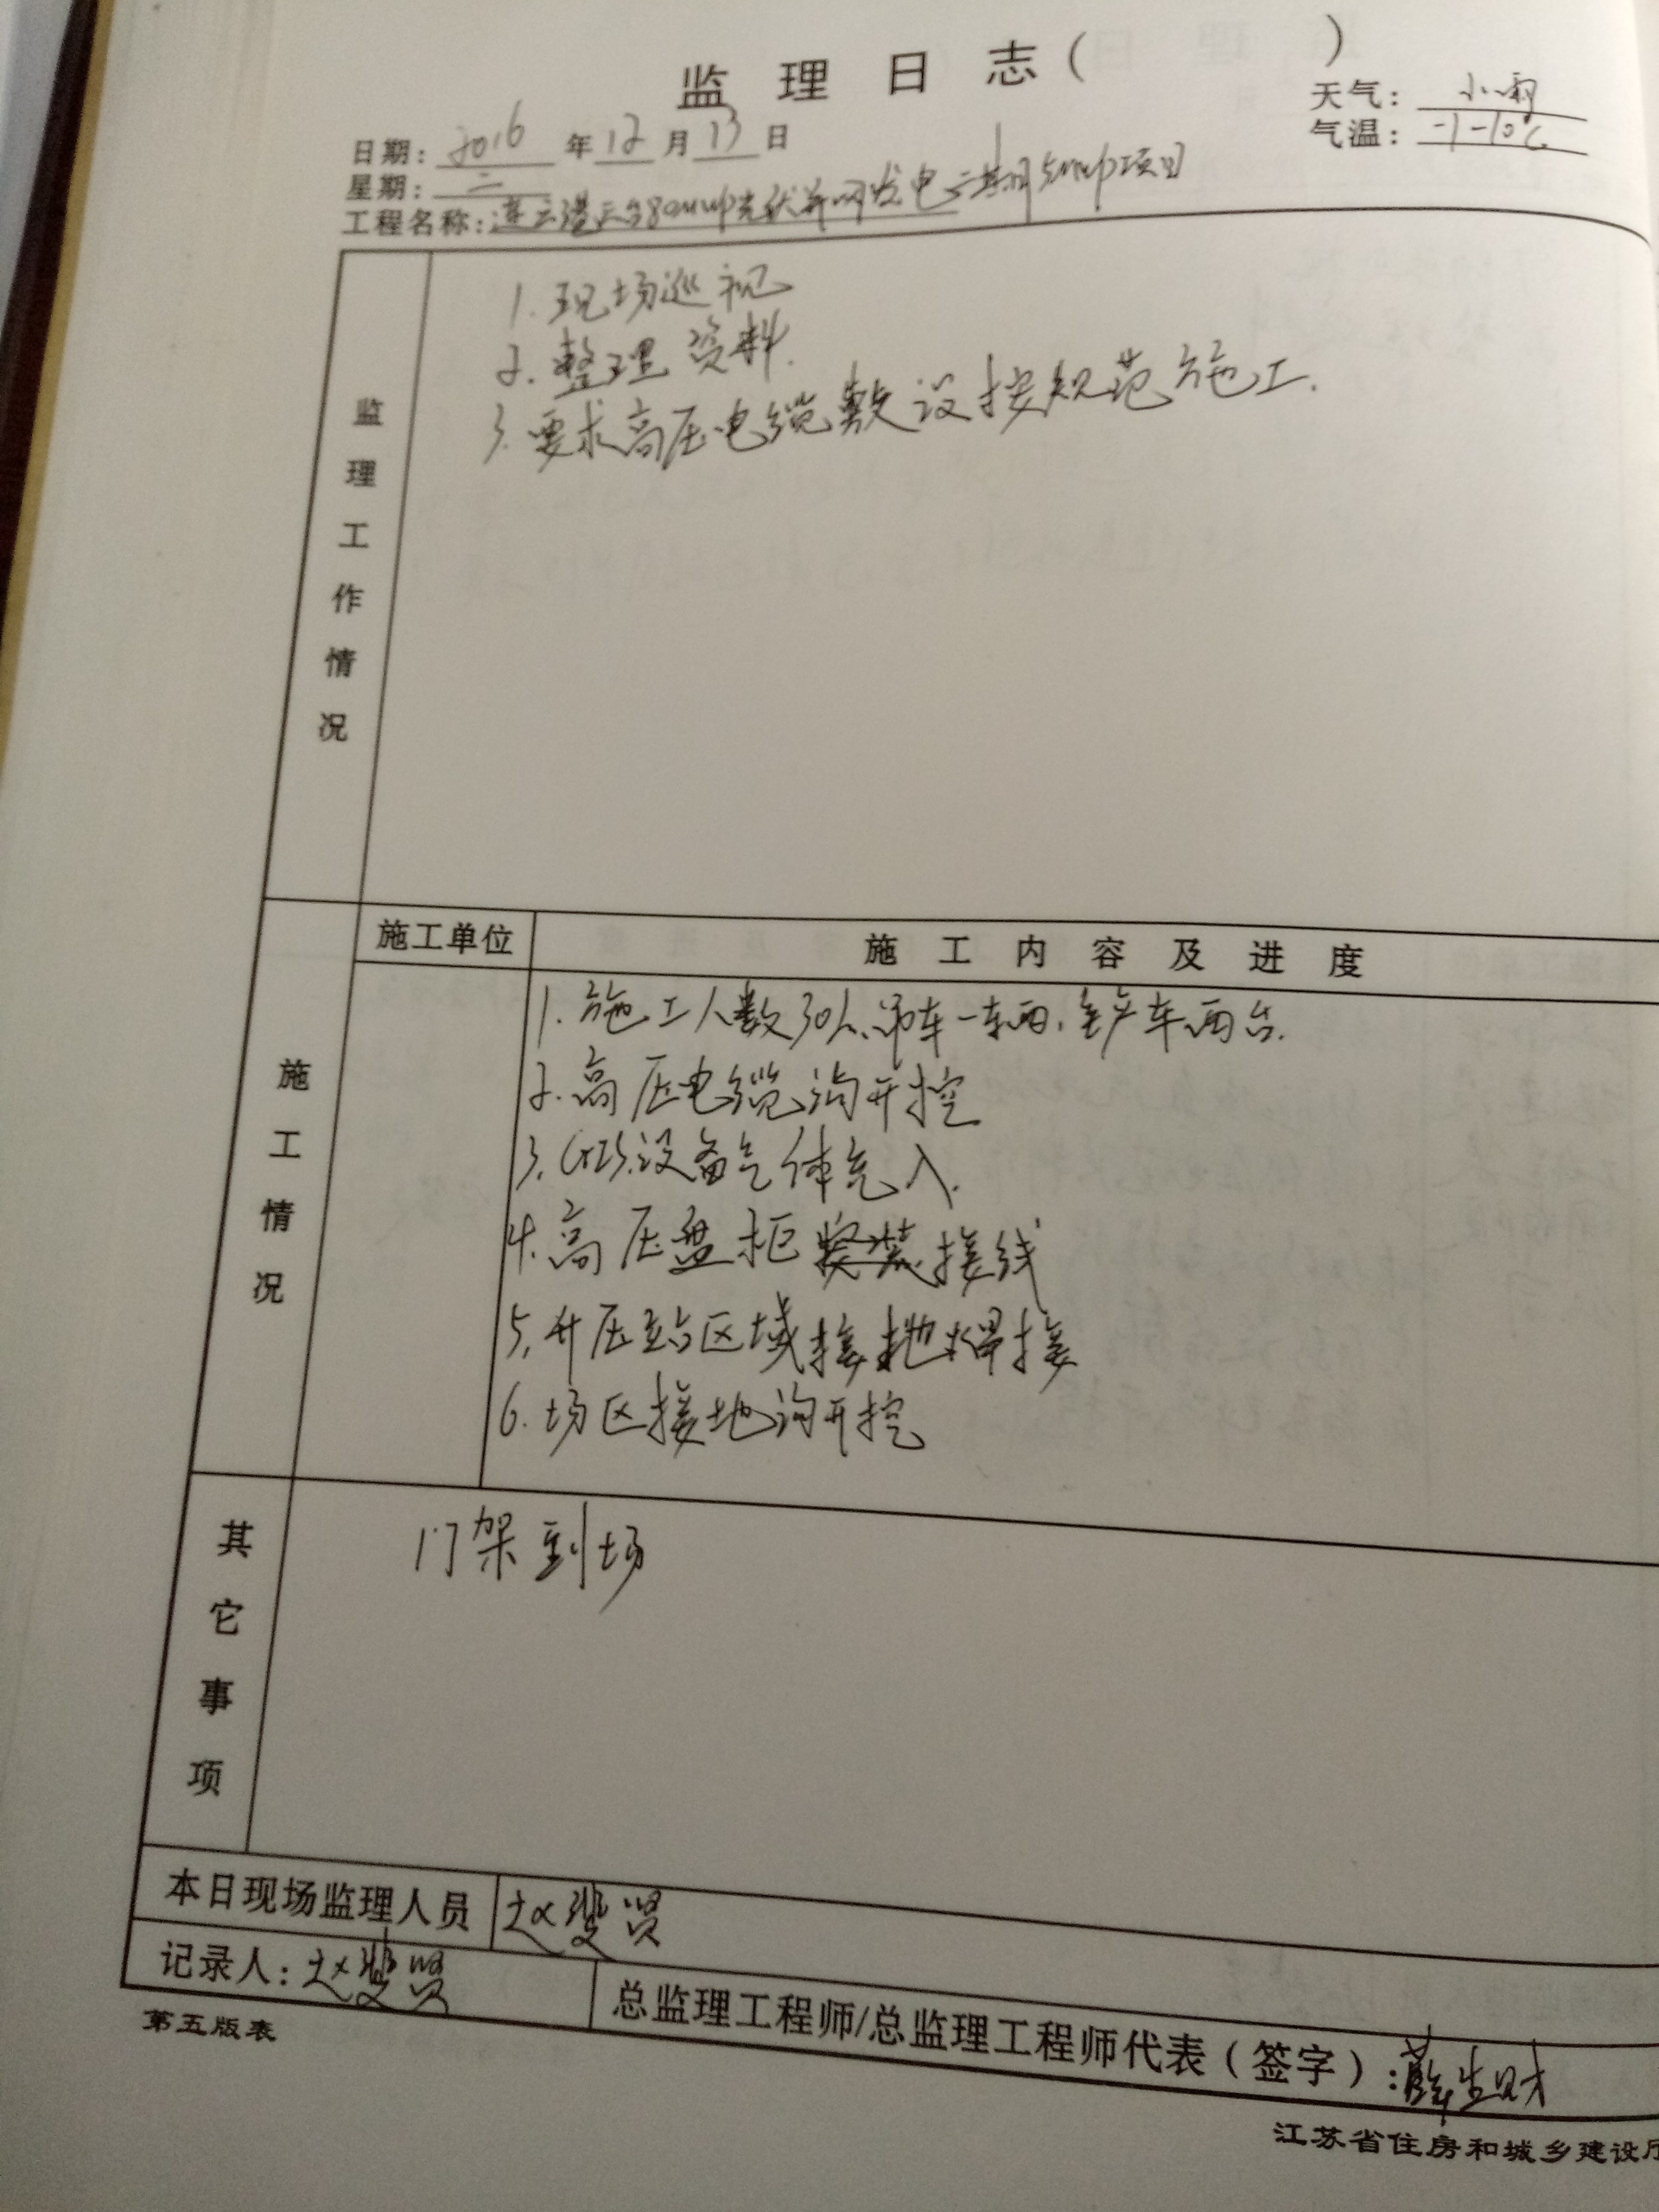 监理日志（ ）
天气：小雨
日期：2016年12月13日
气温：-1-10℃
星期：二
工程名称：连云港云台80MWP光伏并网发电二期15MWP项目
监理工作情况
1.现场巡视
2.整理资料.
3.要求高压电缆敷设按规范施工.
施工情况
施工单位
施工内容及进度
1.施工人数30人、吊车一辆、铲车两台.
2.高压电缆沟开挖
3.GIS设备气体充入.
4.高压盘柜接线
5.升压站区域接地焊接
6.场区接地沟开挖
其它事项
门架到场
本日现场监理人员 赵 贤
记录人：赵 贤
总监理工程师/总监理工程师代表（签字）：薛生财
第五版表
江苏省住房和城乡建设厅